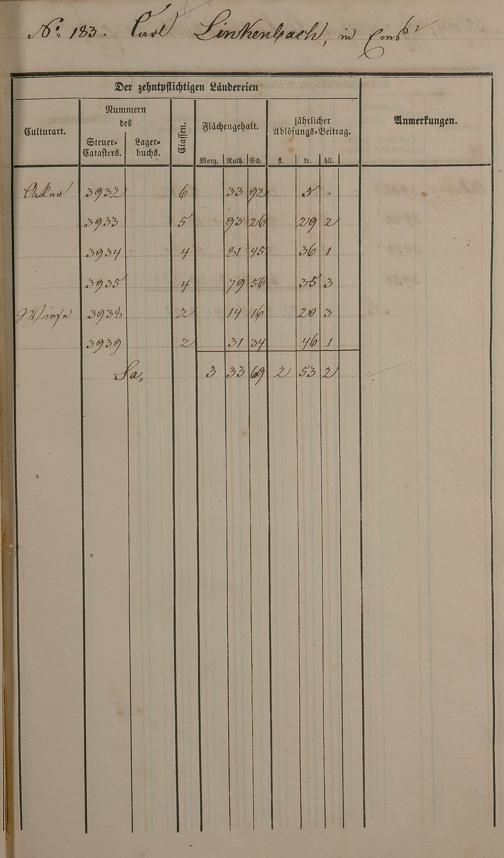 No. 183. Carl Linkenbach, in Ems
Der zehntpflichtigen Ländereien
Culturart.
Nummern des
Steuer-Catasters.
Lager-buchs.
Classen.
Flächengehalt.
jährlicher Ablösungs-Beitrag.
Anmerkungen.
Morg. Ruth. Sch. fl. kr. hll.
Acker 3932 6 33 92 5 .
3933 5 93 26 29 2
3934 4 81 45 36 1
3935 4 79 56 35 3
Wiese 3938 2 14 16 20 3
3939 2 31 34 46 1
Sa. 3 33 69 2 53 2